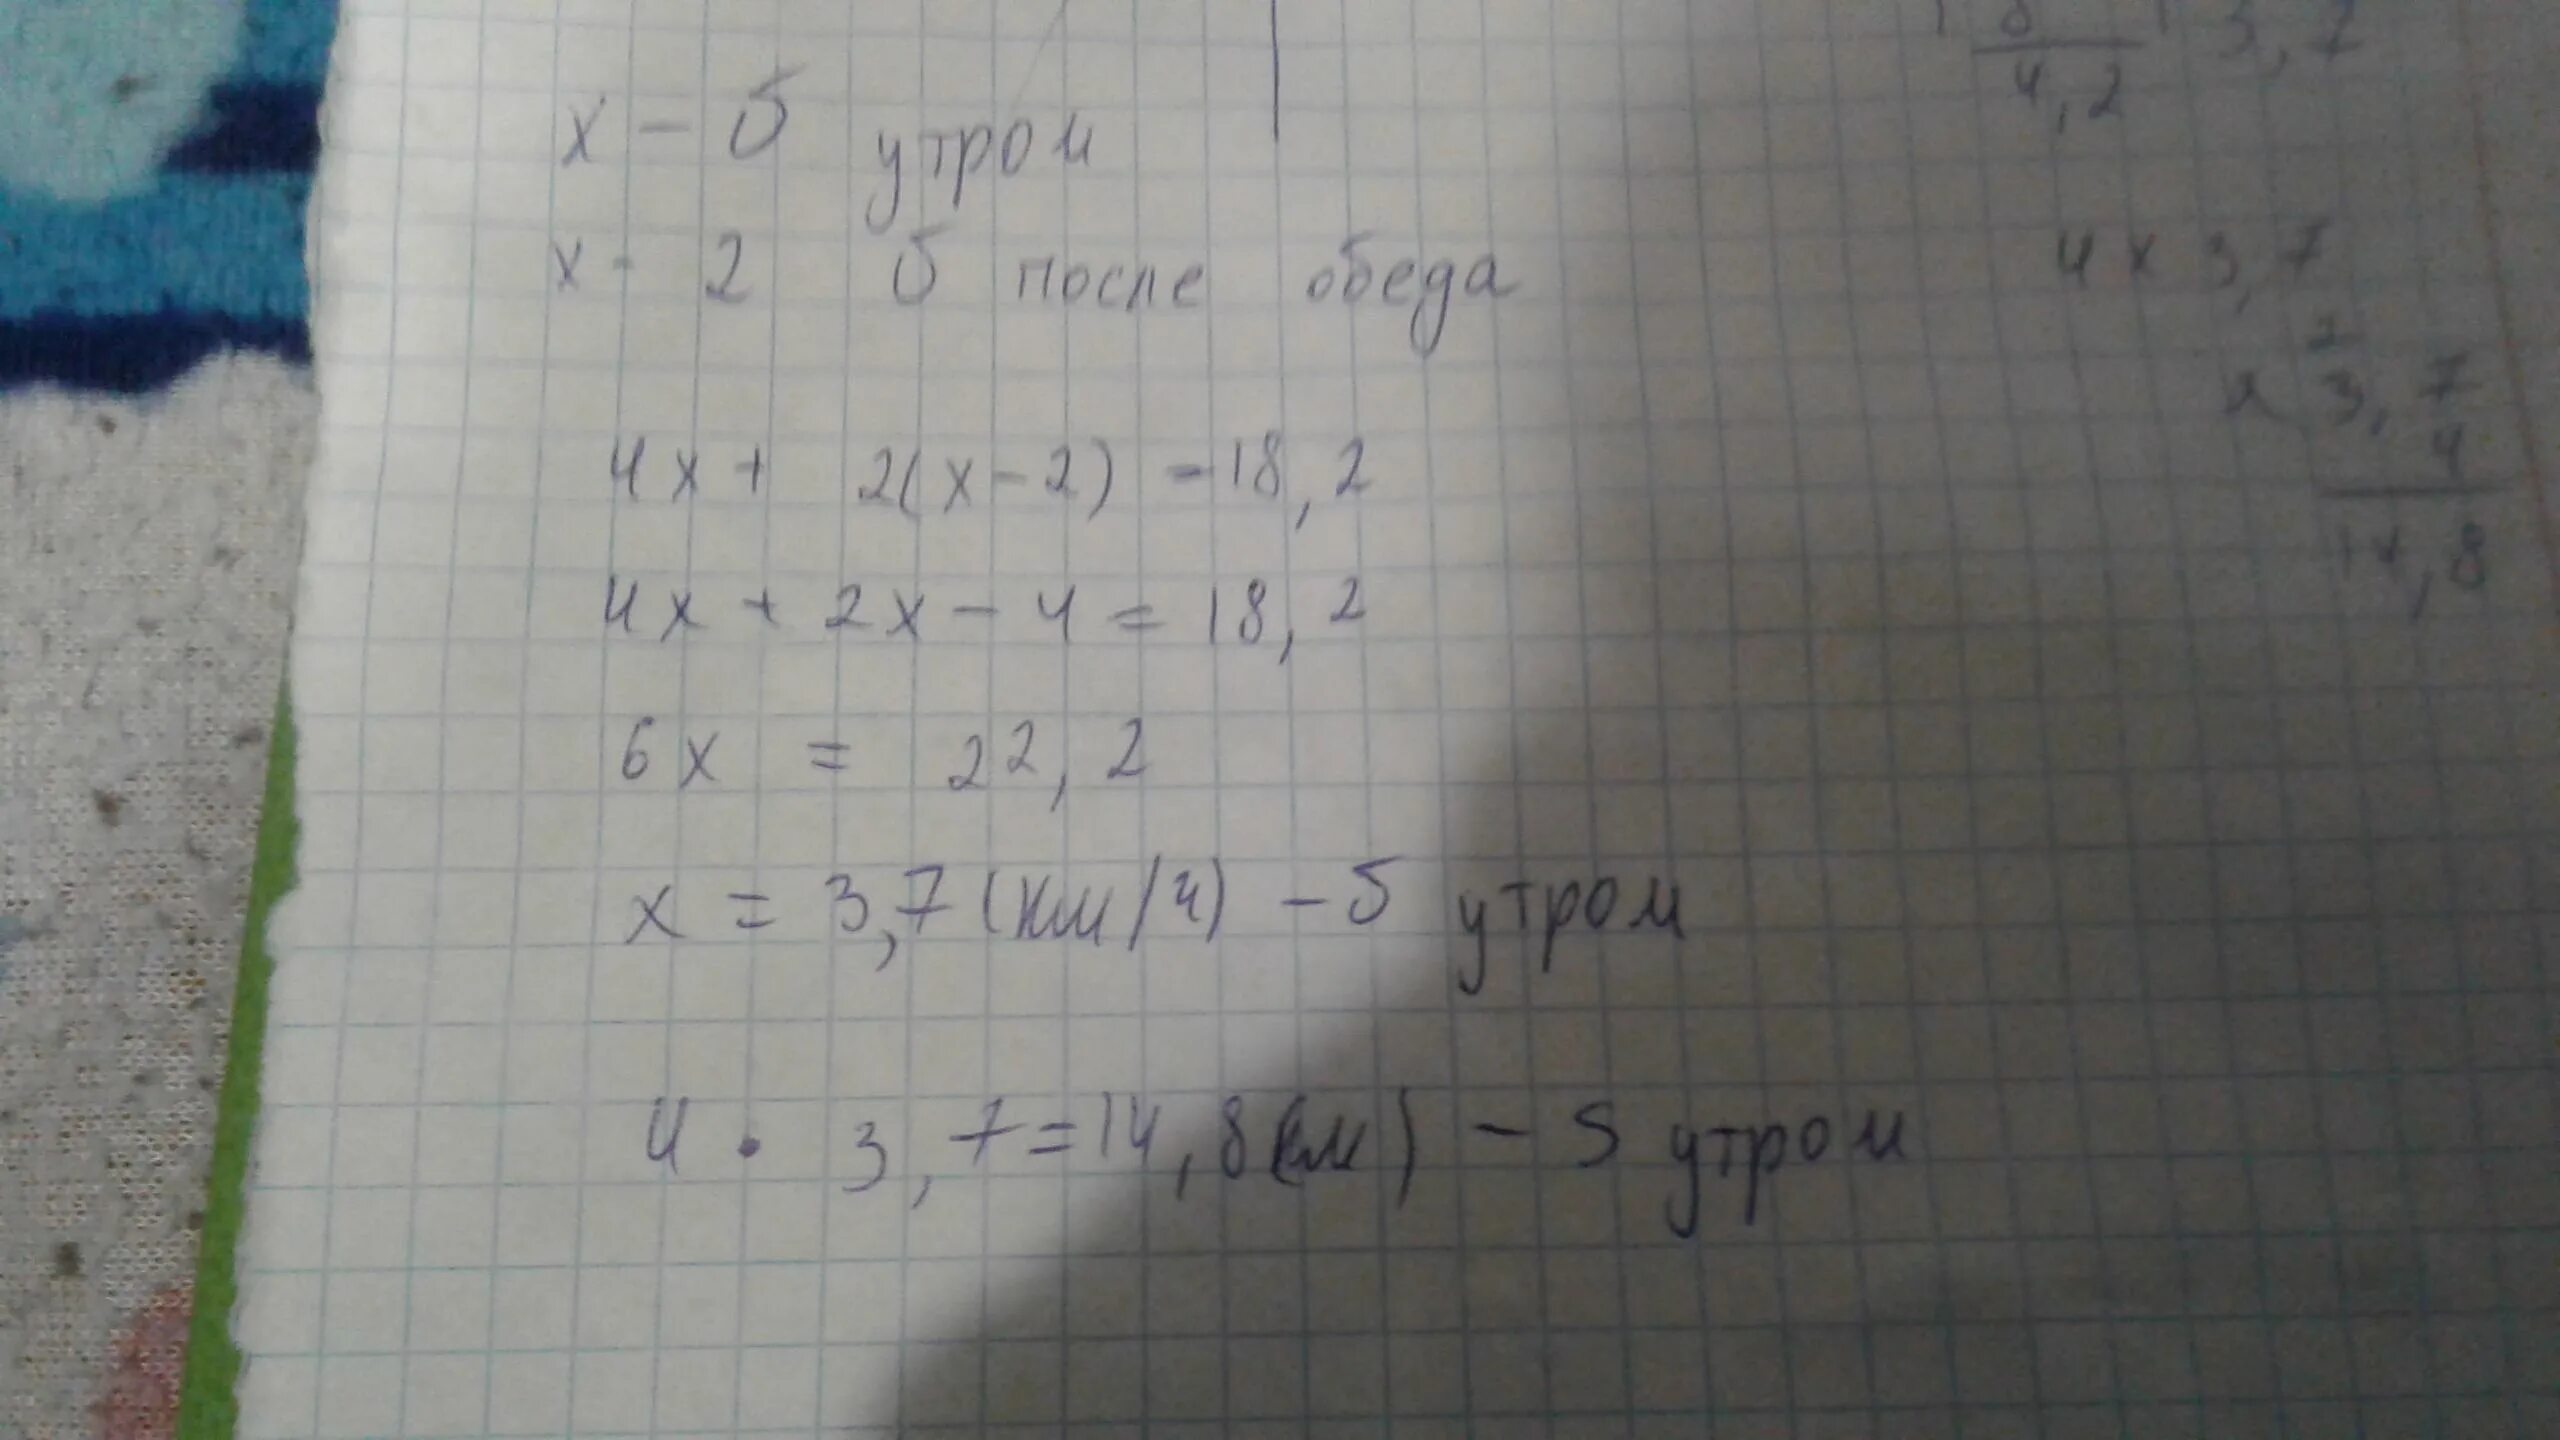 x - υ утром
x - 2 υ после обеда
4x + 2(x-2) = 18,2
4x + 2x - 4 = 18,2
6x = 22,2
x = 3,7 (км/ч) - υ утром
4 · 3,7 = 14,8 (км) - S утром
8
4,2
3,7
4 x 3,7
2
x 3,7
4
14,8